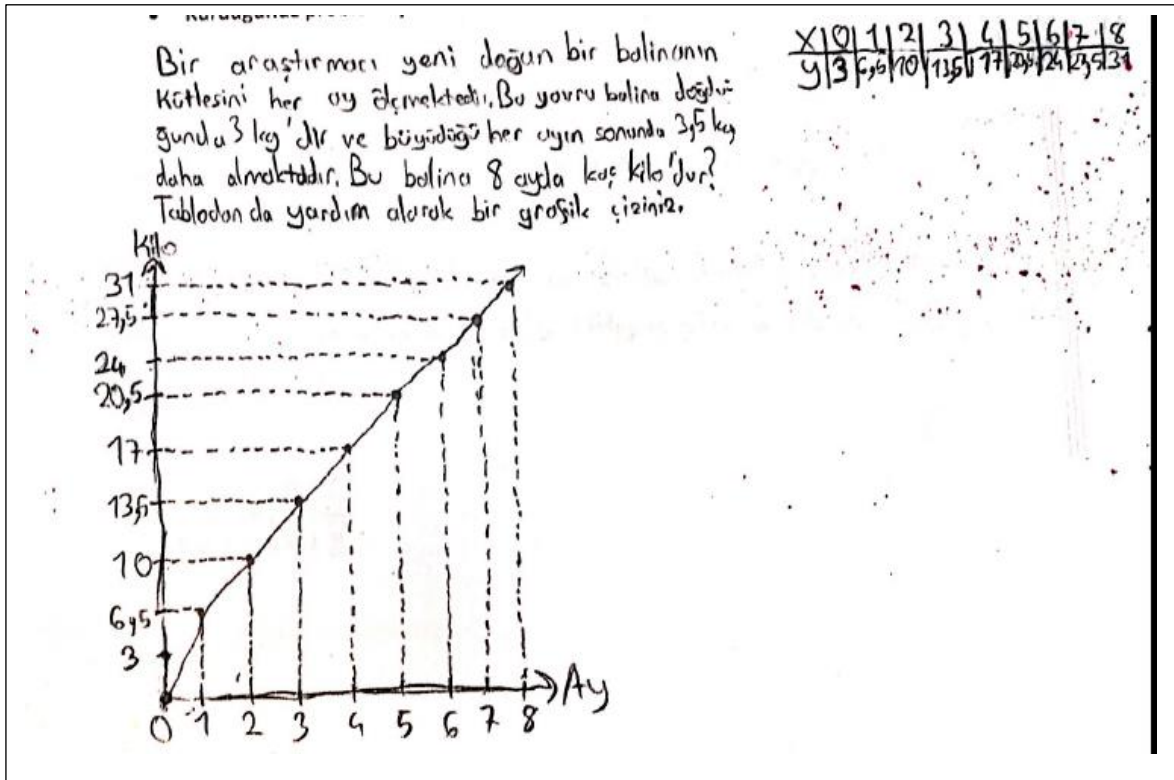 Bir araştırmacı yeni doğan bir balinanın
kütlesini her ay ölçmektedir. Bu yavru balina doğdu-
ğunda 3 kg'dır ve büyüdüğü her ayın sonunda 3,5 kg
daha almaktadır. Bu balina 8 ayda kaç kilo'dur?
Tablodan da yardım alarak bir grafik çiziniz.
X 0 1 2 3 4 5 6 7 8
y 3 6,5 10 13,5 17 20,5 24 27,5 31
Kilo
31
27,5
24
20,5
17
13,5
10
6,5
3
0 1 2 3 4 5 6 7 8 Ay